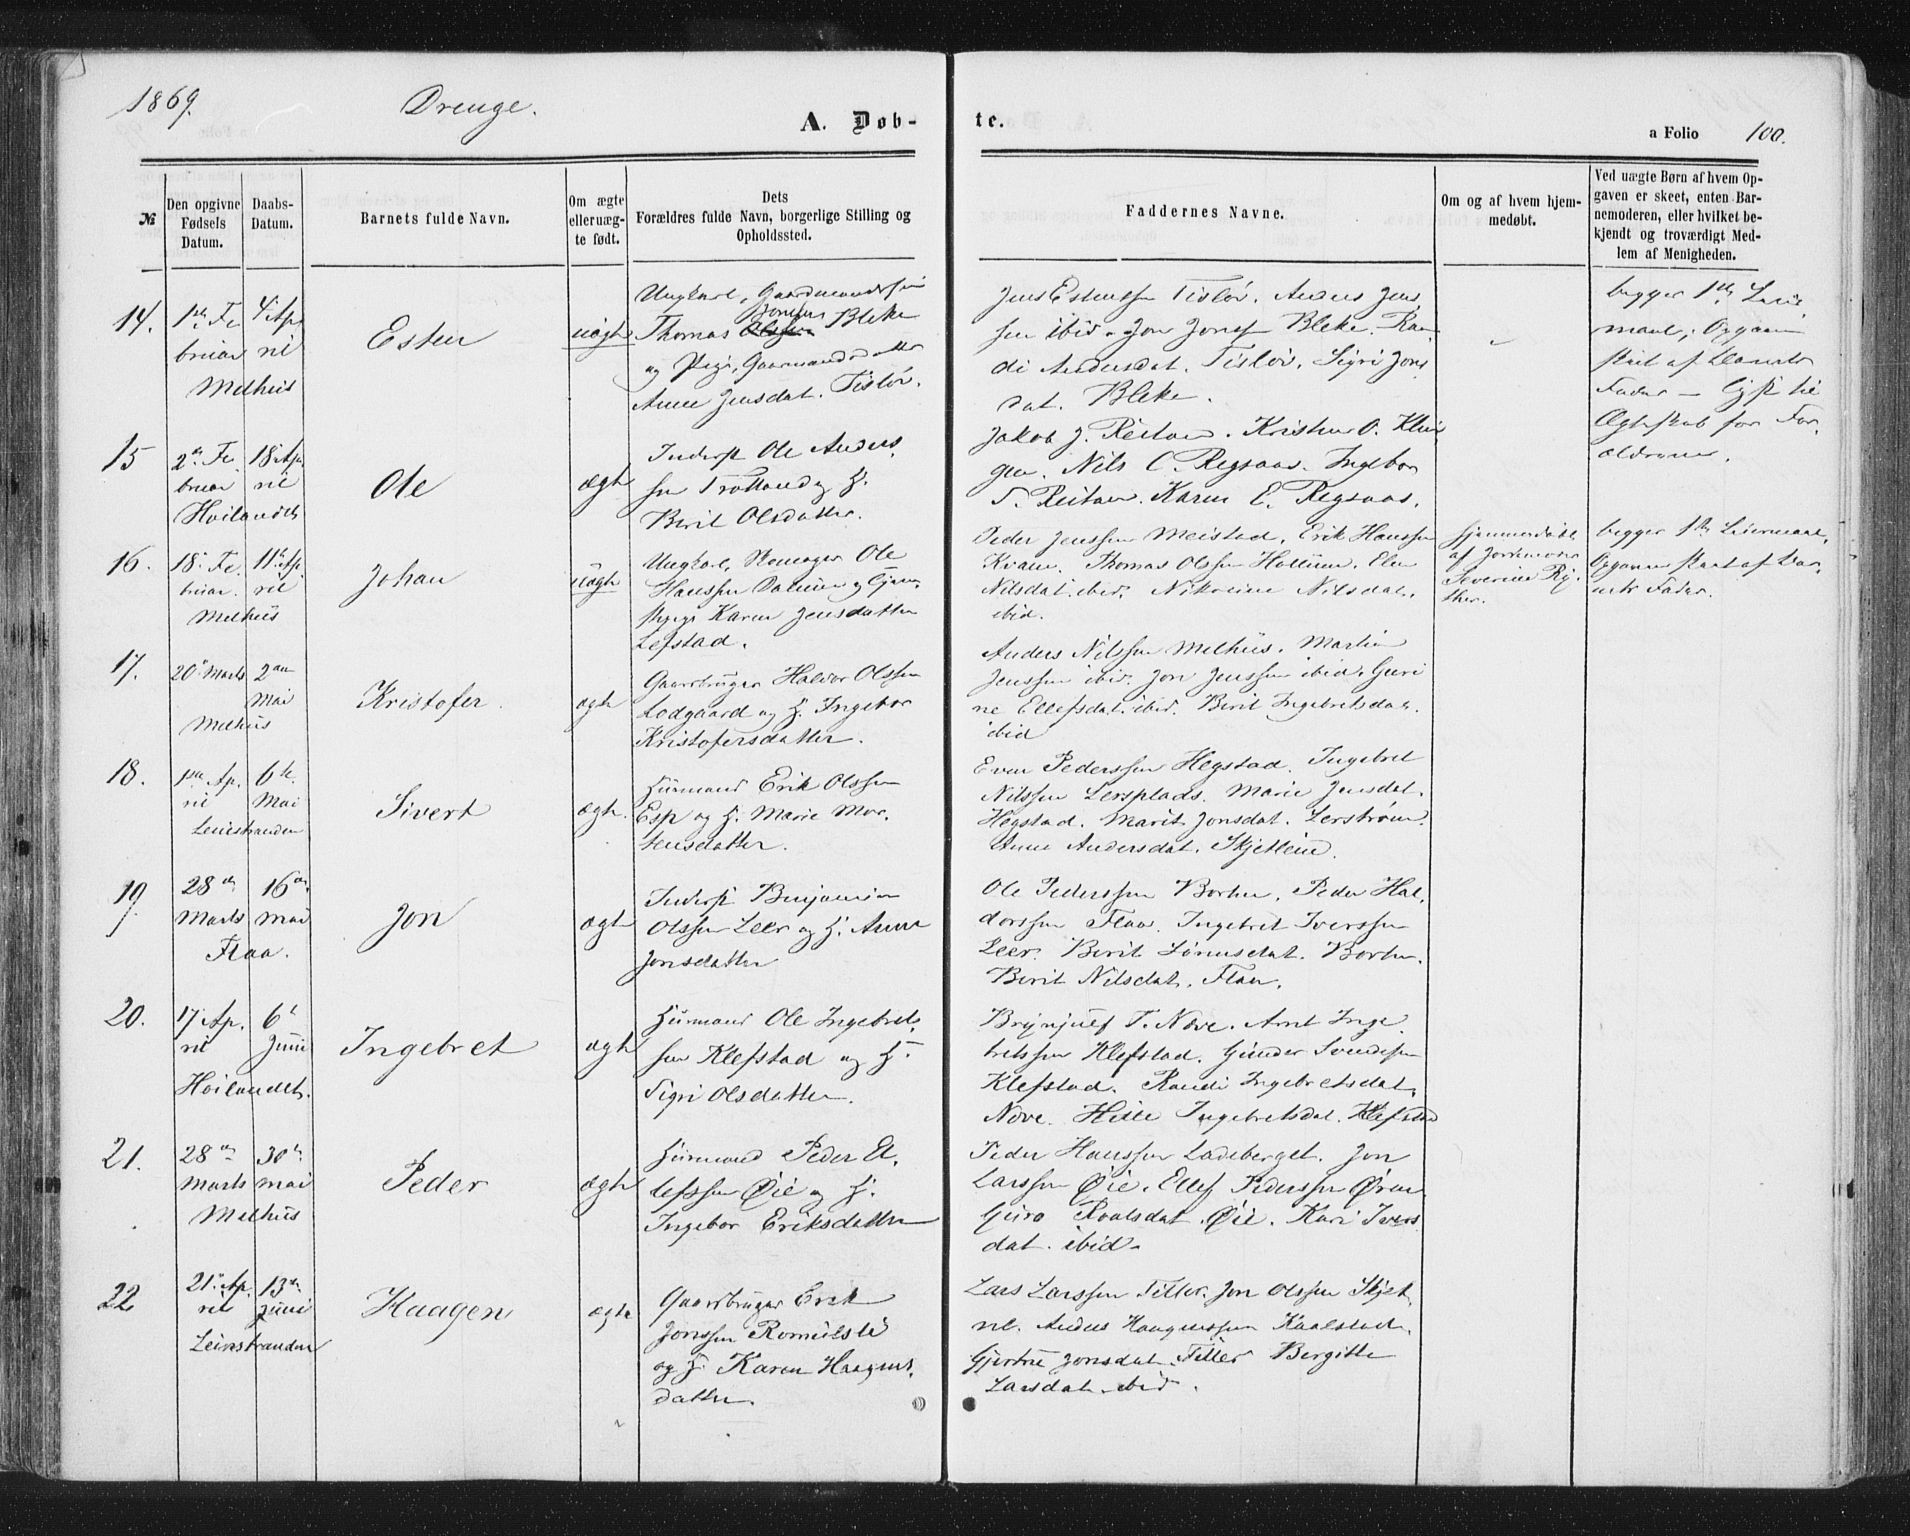 1869.
Drenge.
A. Døb-
te.
a Folio 100.
№
Den opgivne Fødsels Datum.
Daabs-Datum.
Barnets fulde Navn.
Om ægte eller uæg-te født.
Dets
Forældres fulde Navn, borgerlige Stilling og
Opholdssted.
Faddernes Navne.
Om og af hvem hjem-
medøbt.
Ved uægte Børn af hvem Op-
gaven er skeet, enten Bar-
nemoderen, eller hvilket be-
kjendt og troværdigt Med-
lem af Menigheden.
14.
1ste Fe
bruar
Melhus
4de Ap
ril
Esten
uægte
Ungkarl, Gaardmandssøn
Jonsen
Thomas Olsen Bleke
og Pige, Gaarmandsdatter
Anne Jensdat. Tisløv.
Jens Estensen Tisløv. Anders Jens
sen ibid. Jon Jonsen Bleke. Ran
di Andersdat. Tisløv. Sigri Jons
dat. Bleke.
begges 1ste Leier
maal; Opgaven
skeet af Barnets
Fader
Ægteskab for For
ældrene.
15
2den Fe
bruar
Hoilandet
18de Ap
ril
Ole
ægte
Inderst Ole Anders
sen Trøttand og H.
Berit Olsdatter.
Jakob J. Reitan. Kristen O. Klun
gen. Nils C. Regsaas. Ingebor
T. Reitan. Karen E. Regsaas.
16.
18de Fe
bruar.
Melhus
11te Ap
ril
Johan
uægte
Ungkarl, Ole
Hanssen Dalum og Tjene
stepige Karen Jensdatter
Lefstad.
Peder Jenssen Meistad. Erik Hanssen
Kvam. Thomas Olsen Hollum. Elen
Nilsdat. ibid. Nikoline Nilsdat.
ibid.
hjemmedøbt
af Jordemoder
Severine Ry
ther.
begges 1ste Leiermaal,
Opgaven skeet af Bar
nets Fader.
17.
20de Marts
Melhus
2den
Mai
Kristofer.
ægte
Gaardbruger Haldor Olssen
Lodgaard og H. Ingebor
Kristofersdatter.
Anders Nilssen Melhus. Martin
Jenssen ibid. Jon Jenssen ibid. Guri
ne Ellefsdat. ibid. Berit Ingebretsdat.
ibid
18.
1ste Ap.
ril
Leinstranden
6te
Mai
Sivert
ægte.
Husmand Erik Olssen
Esp og H. Marie Mor
tensdatter.
Even Pederssen Hegstad. Ingebret
Nilssen Lersplads. Marie Jensdat.
Hegstad. Marit Jonsdat. Lerstrøm.
Anne Andersdat. Skjetlein.
19
28de
Marts
Flaa.
16de
Mai
Jon
ægte
Inderst Benjamin
Olssen Leer og H. Anne
Jonsdatter
Ole Pederssen Borten. Peder Hal
dorssen Flaa. Ingebret Iverssen
Leer. Berit Lønnesdat. Borten.
Berit Nilsdat. Flaa.
20.
17 Ap.
ril
Hoilandet.
6te
Juni
Ingebret
ægte
Husmand Ole Ingebret
sen Klefstad og H.
Sigri Olsdatter.
Brynjulf T. Nove. Arnt Inge
bretssen Klefstad. Gunder Svendsen
Klefstad. Randi Ingebretsdat.
Nove. Ingebretsdat. Klefstad
21.
28de
Marts
Melhus
30te
Mai
Peder
ægte
Husmand Peder El
lefssen Øie og H.
Ingebor Eriksdatter
Peder Hanssen Ladeberget. Jon
Larssen Øie. Ellef Pederssen Øren
Guro Roalsdat. Øie. Kari Ivers
dat. ibid.
22
21de Ap.
ril
Leinstranden
13de
Juni
Haagen
ægte
Gaardbruger Erik
Jonssen Romulsli
og H. Karen Haagens
datter.
Lars Larssen Tiller. Jon Olssen Skjet
ne. Anders Haagenssen Kaalstad.
Gjertrud Jonsdat. Tiller Bergitte
Larsdat. ibid.